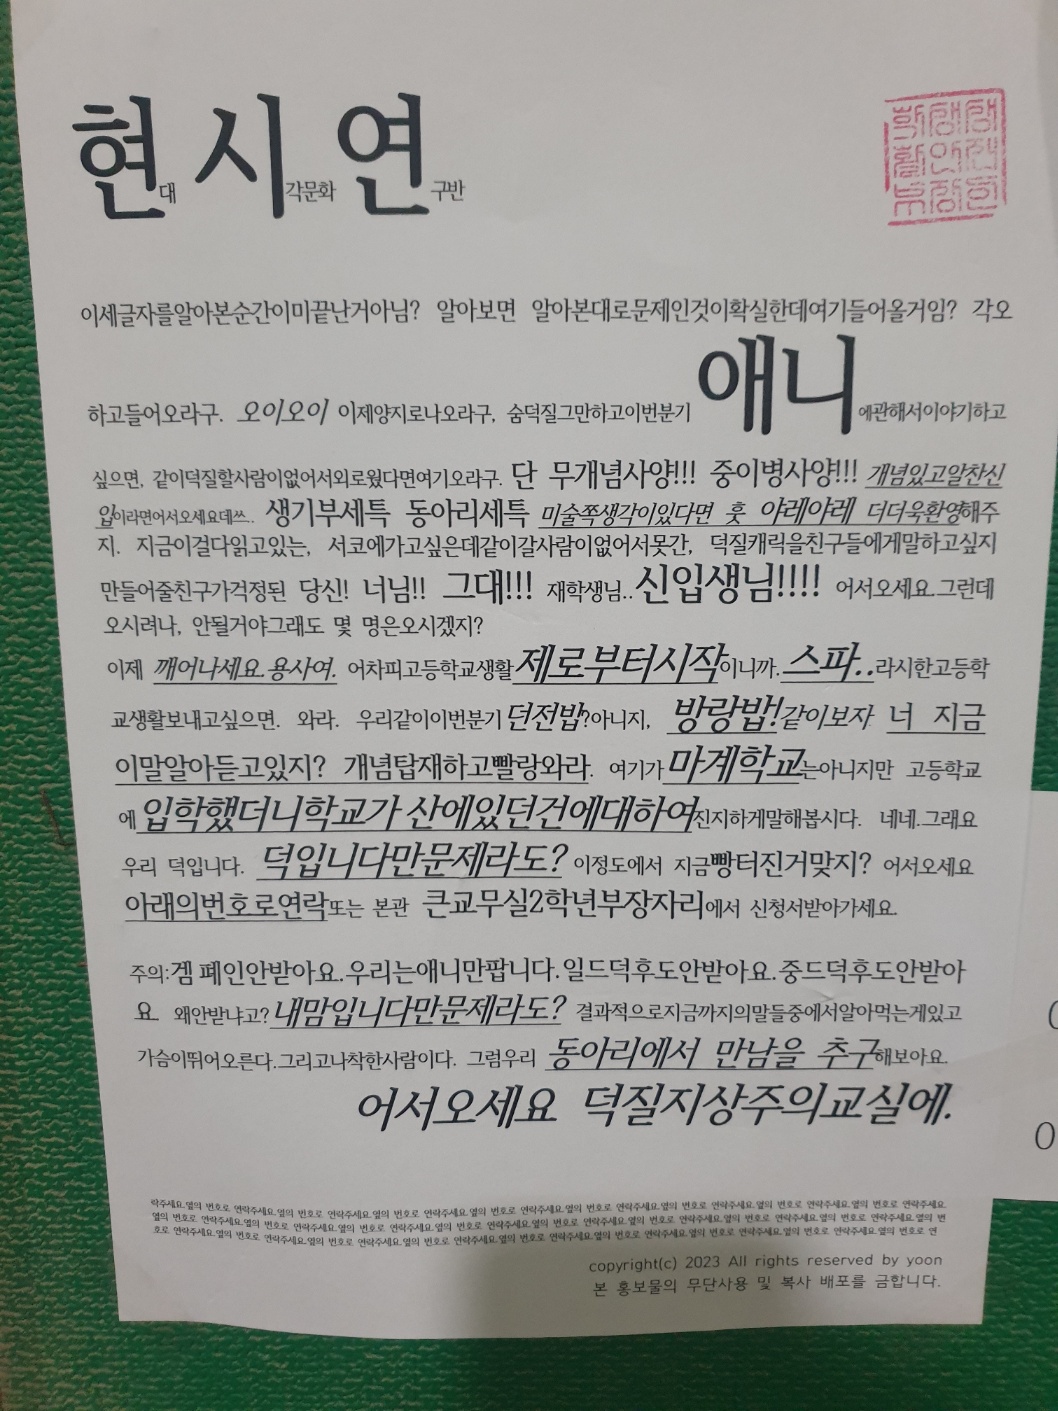 현대 시각문화 연구반
이세글자를알아본순간이미끝난거아님? 알아보면 알아본대로문제인것이확실한데여기들어올거임? 각오
하고들어오라구. 오이오이 이제양지로나오라구, 숨덕질그만하고이번분기 애니에관해서이야기하고
싶으면, 같이덕질할사람이없어서외로웠다면여기오라구. 단 무개념사양!!! 중이병사양!!! 개념있고알찬신
입이라면어서오세요데쓰.. 생기부세특 동아리세특 미술쪽생각이있다면 훗 야레야레 더더욱환영해주
지. 지금이걸다읽고있는, 서코에가고싶은데같이갈사람이없어서못간, 덕질캐릭을친구들에게말하고싶지
만들어줄친구가걱정된 당신! 너님!! 그대!!! 재학생님..신입생님!!!! 어서오세요.그런데
오시려나, 안될거야그래도 몇 명은오시겠지?
이제 깨어나세요.용사여. 어차피고등학교생활제로부터시작이니까. 스파..라시한고등학
교생활보내고싶으면. 와라. 우리같이이번분기던전밥?아니지, 방랑밥!같이보자 너 지금
이말알아듣고있지? 개념탑재하고빨랑와라. 여기가마계학교는아니지만 고등학교
에입학했더니학교가 산에있던건에대하여진지하게말해봅시다. 네네.그래요
우리 덕입니다. 덕입니다만문제라도? 이정도에서 지금빵터진거맞지? 어서오세요
아래의번호로연락또는 본관 큰교무실2학년부장자리에서 신청서받아가세요.
주의:겜 폐인안받아요.우리는애니만팝니다.일드덕후도안받아요.중드덕후도안받아
요 왜안받냐고?내맘입니다만문제라도? 결과적으로지금까지의말들중에서알아먹는게있고
가슴이뛰어오른다.그리고나착한사람이다. 그럼우리 동아리에서 만남을 추구해보아요.
어서오세요 덕질지상주의교실에.
락주세요.옆의 번호로 연락주세요.옆의 번호로 연락주세요.옆의 번호로 연락주세요.옆의 번호로 연락주세요.옆의 번호로 연락주세요.옆의 번호로 연락주세요.옆의 번호로 연락주세요.옆의 번호로 연락주세요
옆의 번호로 연락주세요.옆의 번호로 연락주세요.옆의 번호로 연락주세요.옆의 번호로 연락주세요.옆의 번호로 연락주세요.옆의 번호로 연락주세요.옆의 번호로 연락주세요.옆의 번호로 연락주세요.옆의 번
호로 연락주세요.옆의 번호로 연락주세요.옆의 번호로 연락주세요.옆의 번호로 연락주세요.옆의 번호로 연락주세요.옆의 번호로 연락주세요.옆의 번호로 연락주세요.옆의 번호로 연락주세요.옆의 번호로 연
copyright(c) 2023 All rights reserved by yoon
본 홍보물의 무단사용 및 복사 배포를 금합니다.